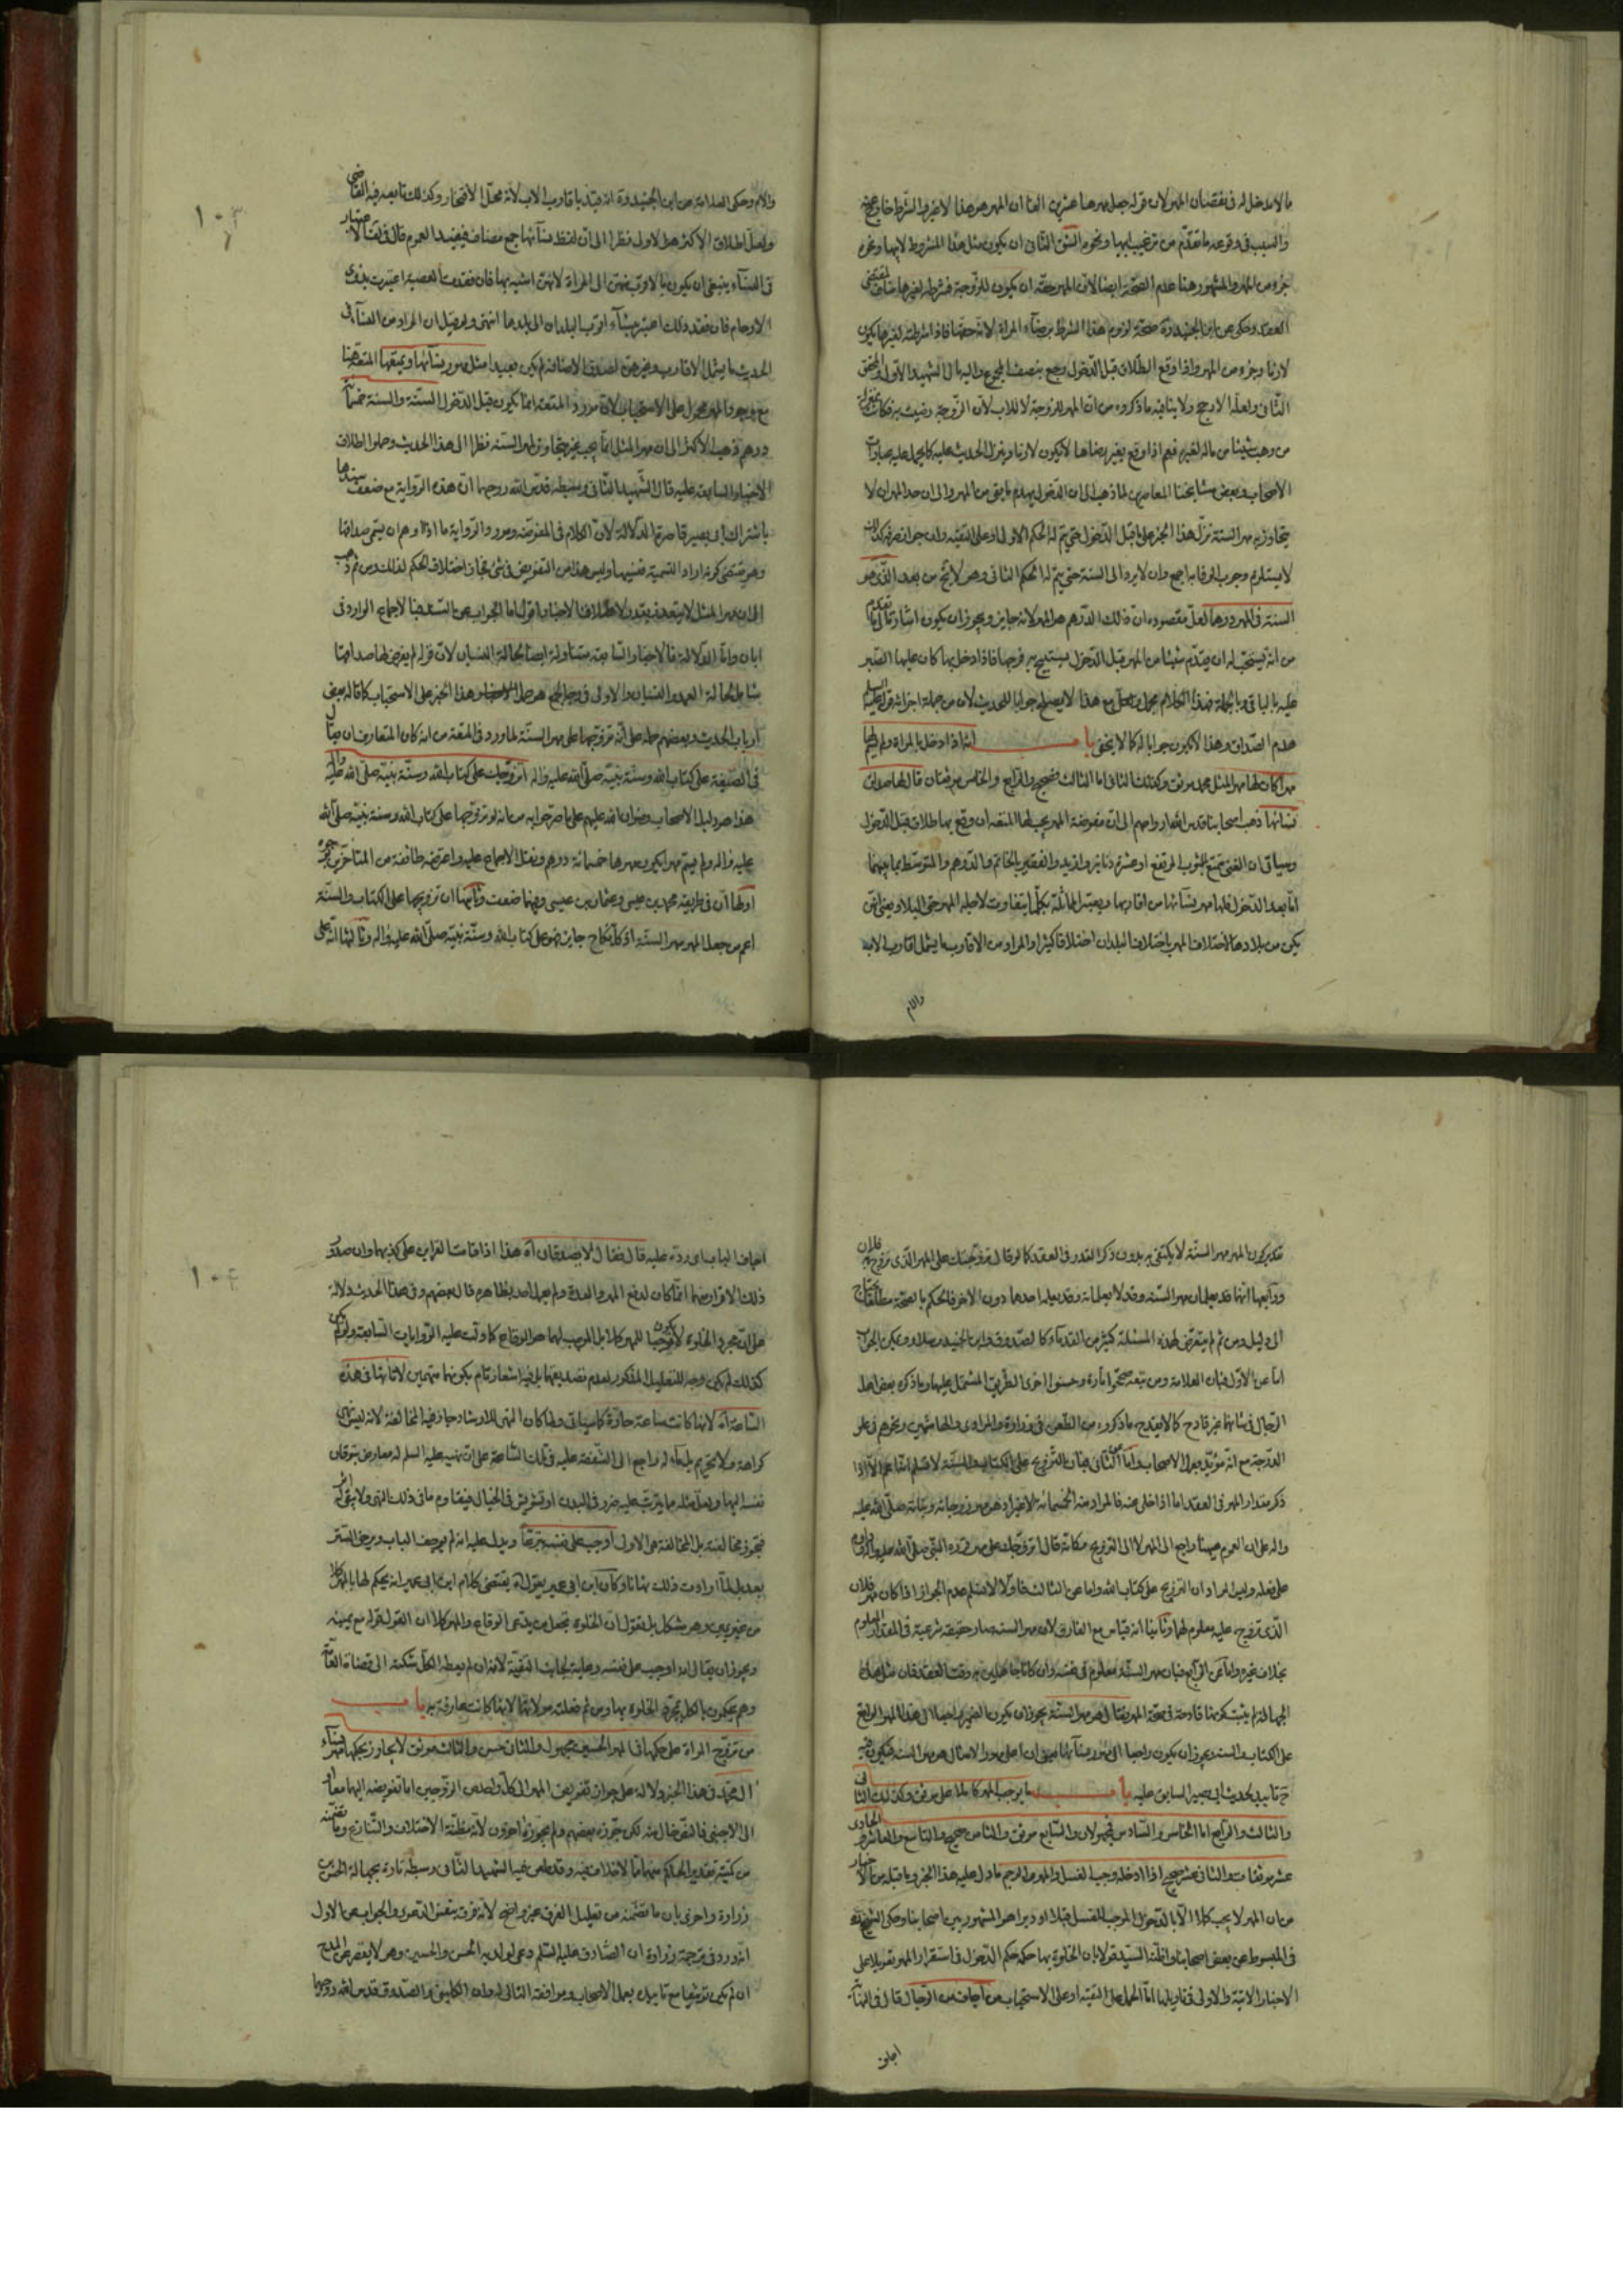 ما لا مدخل له فى نقصان المهر لان قوله جعل مهرها عشرين الفا ان المهر هو هذا لا غير والشرط خارج عنه
والسبب فى وقوعه ما تقدّم من ترغيب ابيها ونحوه الشق الثانى ان يكون مثل هذا المشروط لابيها ونحوه
جزء من المهر والمشهور هنا عدم الصحّة ايضا لانّ المهر حقّه ان يكون للزوجة فشرطه لغيرها مناف لمقتضى
العقد وحكى عن ابن الجنيد ره صحّة لزوم هذا الشرط برضاء المراة لانّه حقّها فاذا شرطته لغيرها يكون
لازما وجزء من المهر واذا وقع الطلاق قبل الدخول رجع بنصف المجموع واليه مال الشهيد الاول والمحقق
الثانى ولعلّه الارجح ولا ينافيه ما ذكروه من انّ المهر للزوجة لا للاب لانّ الزّوجة رضيت به فكانت بمنزلة
من وهب شيئا من ماله لغيره فنعم اذا وقع بغير رضاها لا يكون لازما وينزل الحديث عليه كما يحمل عليه عبارات
الاصحاب وبعض مشايخنا المعاصرين لما ذهب الى ان الدخول يهدم ما بقى من المهر والى ان حد المهر ان لا
يتجاوز به مهر السنة نزّل هذا الخبر على ما قبل الدخول حتى يتم له الحكم الاول
لا يستلزم وجوب الوفا به اجمع وان لا يرد الى السنة حتى يتم له الحكم الثانى وهو لا يخ من بعد الذى هو
السنة فى المهور وهذا لعلّ مقصوده ان ذلك الدرهم هو المهر لانه جايز ويجوز ان يكون اشارة الى ما تقدم
من انه يستحبّ له ان يقدّم شيئا من المهر قبل الدخول يستبيح به فرجها فاذا دخل بها كان عليها الصّبر
عليه بالباقى وبالجملة فهذا الكلام مجمل ولعلّ مع هذا لا يصلح جوابا للحديث لان من جملة اجزائه قوله عليه السلم
هدم الصداق وهذا لا يكون جوابا له كما لا يخفى باب انه اذا دخل بالمراة ولم يسم لها
مهرا كان لها مهر المثل محمد موثق وكذلك الثانى اما الثالث فصحيح والرابع والخامس موثقان قال لها صداق
نسائها ذهب اصحابنا قدس الله ارواحهم الى ان مفوضة المهر يجب لها المتعة ان وقع بها طلاق قبل الدخول
وسياتى ان الغنى يمتع بالثوب المرتفع او عشرة دنانير وازيد والفقير بالخاتم والدرهم والمتوسط بما بينهما
امّا بعد الدخول فلها مهر نسآئها من اقاربها ويعتبر المماثلة بكلّ ما يتفاوت لاجله المهر حتى البلاد يعنى انهن
يكن من بلادها لاختلاف المهر باختلاف البلدان اختلافا كثيرا والمراد من الاقارب ما يشمل اقارب الاب
والام
١٠٣
والام وحكى العلامة عن ابن الجنيد ره انه قيّد باقارب الاب لانه محلّ الافتخار وكذلك تابعه فيه القاضى
ولعلّ اطلاق الاكثر هو الاول نظرا الى انّ لفظ نسآئها جمع مضاف فيفيد العموم قال
فى النسآء ينبغى ان يكون بالاقرب منهن الى المراة لانهن اشبه بها فان فقدت العصبة اعتبرت بذوى
الارحام فان فقد ذلك اعتبر بنسآء اقرب البلدان الى بلدها انتهى ولو قيل ان المراد من النسآء فى
الحديث ما يشمل الاقارب وغيرهن لصدق الاضافة لم يكن بعيدا مثل مهور نسائها ويمتعها المتعة هنا
مع وجود المهر محمول على الاستحباب لان مورد المتعة انما يكون قبل الدخول السنّة والسنة خمسمأة
درهم ذهب الاكثر الى ان مهر المثل انما يجب بغير تجاوز مهر السنّة نظرا الى هذا الحديث وحملوا اطلاق
الاخبار السابقة عليه قال الشهيد الثانى وسبطه قدس الله روحهما ان هذه الرواية مع ضعف سندها
باشتراك ابى بصير قاصرة الدلالة لان الكلام فى المفوضة ومورد الرواية ما اذا وهم ان يسمى صداقها
وهو يقتضى كونه اراد التسمية فنسيها وليس هذا من التفويض فى شئ فجاز اختلاف الحكم لذلك ومن ثم ذهب
الى ان مهر المثل لا يتقدر بقدر لاطلاق الاخبار اقول اما الجواب عن السند فبالاجماع الوارد فى
ابان وامّا الدلالة فالاخبار السابقة متناولة ايضا لحالة النسيان لان قوله لم يفرض لها صداقها
شامل لحالة العمد والنسيان والاولى فى وجه الجمع هو حمل هذا الخبر على الاستحباب كما قاله بعض
ارباب الحديث وبعضهم حمله على انّه تزوجها على مهر السنّة لما ورد فى المتعة من انه كان المتعارف ان يقال
فى الصّيغة على كتاب الله وسنّة نبيّه صلى الله عليه واله اتزوجك على كتاب الله وسنّة نبيّه صلى الله عليه واله
هذا هو دليل الاصحاب رضوان الله عليهم على ما صرّحوا به من انه لو تزوجها على كتاب الله وسنة نبيّه صلى الله
عليه واله ولم يسم مهرا يكون مهرها خمسمائة درهم ونقل الاجماع عليه واعترضه طائفة من المتاخرين بوجوه
اولها ان فى طريقه محمد بن عيسى وعثمان بن عيسى وفيهما ضعف وثانيها ان تزويجها على الكتاب والسنّة
اعم من جعل المهر مهر السنّة اذ كل نكاح جايز فهو على كتاب الله وسنّة نبيّه صلى الله عليه واله وثالثها انه على
تقدير كون المهر مهر السنّة لا يكتفى به بدون ذكر القدر فى العقد كما لو قال تزوجتك على المهر الذى تزوج به فلان
ورابعها انهما قد يعلمان مهر السنّة وقد لا يعلمانه وقد يعلمه احدهما دون الاخر فالحكم بالصحّة مطلقا يحتاج
الى دليل ومن ثم لم يتعرض لهذه المسئلة كثير من القدمآء كالصّدوق وابن الجنيد وسلار ويمكن الجواب
اما عن الاوّل فبان العلامة ومن تبعه صحّحوا تارة وحسنوا اخرى الطريق المشتمل عليهما وما ذكره بعض اهل
الرّجال فى شانهما غير قادح كما لا يقدح ما ذكروه من الطعن فى زرارة والمرادى والهاشمين ونحوهم فى علو
الدّرجة مع انّه مؤيّد بعمل الاصحاب وامّا عن الثانى فبان التزويج على الكتاب والسنّة
ذكر مقدار المهر فى العقد اما اذا خلى عنه فالمراد منه الخمسمائة لا غير اذ هو مهر زوجاته وبناته صلى الله عليه
واله على ان العموم هيهنا راجع الى المهر لا الى التزويج فكانّه قال اتزوجك على مهر قرره النبى صلى الله عليه واله
على فعله وليس المراد ان التزويج على كتاب الله واما عن الثالث فاوّلا لا نسلم عدم الجواز اذا كان مهر فلان
الذى تزوج عليه معلوم لهما وثانيا انه قياس مع الفارق لان مهر السنة صار حقيقة شرعية فى المقدار المعلوم
بخلاف غيره واما عن الرابع فبان مهر السنّة معلوم فى نفسه وان كانا جاهلين به وقت العقد فان مثل هذه
الجهالة لم يثبت كونها قادحة فى صحّة المهر فقال هو مهر السنّة يجوز ان يكون الضمير راجعا الى هذا المهر الواقع
على الكتاب والسنة ويجوز ان يكون راجعا الى مهور نسآئها يعنى ان اعلى مهر الامثال هو مهر السنة فيكون فيه
ح تاييد لحديث ابى بصير السابق عليه باب ما يوجب المهر كاملا على موثق وكذلك الثانى
والثالث والرابع اما الخامس والسادس فمجهولان والسابع موثق والثامن صحيح والتاسع والعاشر والحادى
عشر موثقات والثانى عشر صحيح اذا ادخله وجب الغسل والمهر والرجم ما دل عليه هذا الخبر وما قبله من الاخبار
من ان المهر لا يجب كملا الا بالدخول الموجب للغسل قبلا او دبرا هو المشهور بين اصحابنا وحكى الشيخ ره
فى المبسوط عن بعض اصحابنا قولا بان الخلوة بها حكمه حكم الدخول فى استقرار المهر تعويلا على
الاخبار الاتية والاولى فى تاويلها امّا الحمل على التقيّة او على الاستحباب من اجاف من الرّجال قال فى النهاية
اجاف
١٠٤
اجاف الباب اى ردّه عليه قال فقال لا يصدقان اه هذا اذا قامت القراين على كذبهما وان صدور
ذلك الاقرار منهما انما كان لدفع المهر والعدة ولم يعملا بظاهره قال بعضهم وفى هذا الحديث دلالة
على انّ مجرد الخلوة لا يكون موجبا للمهر كملا بل الموجب لهما هو الوقاع كما دلت عليه الرّوايات السابقة ولو لم يكن
كذلك لم يكن وجه للتعليل المذكور لعدم تصديقهما بل فيه اشعار تام بكونهما متهمين لا تاتها فى هذه
السّاعة اه لانها كانت ساعة حارّة كما سياتى ولما كان النهى للارشاد جاز فيه المخالفة لانه ليس نهى
كراهة ولا تحريم بل مآله راجع الى الشفقة عليه فى تلك السّاعة على ان نهيه عليه السلم له معارض بتوقان
نفسه اليها ولعلّ مثله مما يترتب عليه ضرر فى البدن او تشويش فى الخيال فيقاوم ما فى ذلك النهى
فتجوز مخالفته بل المخالفة هى الاولى اوجب على نفسه تبرّعا ويدل عليه انه لم يوجف الباب ويرخى الستر
بعد بل لمّا ارادت ذلك وكان ابن ابى عمير يقول اه يقتضى كلام ابن ابى عمير انه يحكم لها بالمهر كملا
من غير يمين وهو مشكل بل نقول ان الخلوة تجعل من يدعى الوقاع والمهر كملا ان القول قوله مع يمينه
ويجوز ان يقال انه اوجب على نفسه رعاية لجانب التقيّة لانه ان لم يعطه الكلّ شكته الى قضاة العامّة
وهم يحكمون بالكل بمجرّد الخلوة بها ومن ثم فعلته مولاتها لانها كانت عارفة به باب
من تزوج المراة على حكمها فى المهر الحسن مجهول والثانى حسن والثالث موثق لا يجاوز بحكمها مهر نسآء
ال محمّد فى هذا الخبر دلالة على جواز تفويض المهر الى كلّ واحد من الزوجين اما تفويضه اليهما معا او
الى الاجنبى فالنصّ خال منه لكن جوّزه بعضهم ولم يجوزه اخرون لانّه مظنّة الاختلاف والتنازع وما تضمّنه
من كيفيّة تقدير الحاكم منهما مما لا خلاف فيه وقد طعن فيه الشهيد الثانى وسبطه تارة بجهالة الحسن بن
زرارة واخرى بان ما تضمّنه من تعليل الفرق غير واضح لانّه فرق بنفس الدّعوى والجواب عن الاول
انّه ورد فى ترجمة زرارة ان الصّادق عليه السّلم دعى لولديه الحسن والحسين وهو لا يقصر عن المدح
ان لم يكن توثيقا مع تاييده بعمل الاصحاب وموافقة التالى له وان الكلينى والصّدوق قدس الله روحهما